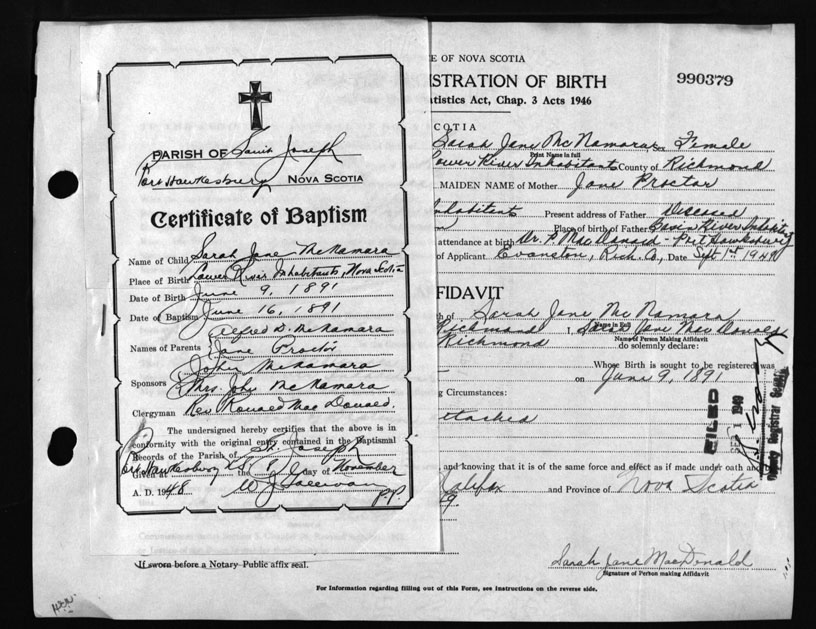 PARISH OF Saint Joseph
Port Hawkesbury NOVA SCOTIA
Certificate of Baptism
Name of Child Sarah Jane McNamara
Place of Birth Lower River Inhabitants, Nova Scotia
Date of Birth June 9, 1891
Date of Baptism June 16, 1891
Alfred D. McNamara
Names of Parents Jane Proctor
John McNamara
Sponsors Mrs. John McNamara
Clergyman Rev Ronald MacDonald.
The undersigned hereby certifies that the above is in
conformity with the original entry contained in the Baptismal
Records of the Parish of St. Joseph
Given at Port Hawkesbury the day of November
A. D. 1948
P.P.
E OF NOVA SCOTIA
ISTRATION OF BIRTH
990379
tatistics Act, Chap. 3 Acts 1946
COTIA
Sarah Jane McNamara Sex Female
Print Name in full
Lower River Inhabitants County of Richmond
MAIDEN NAME of Mother Jane Proctor
nhabitants Present address of Father Diseased
Place of birth of Father
attendance at birth Dr. P. MacDonald - Port Hawkesbury
of Applicant Evanston, Rich. Co., Date Sept 1st 1949
FFIDAVIT
h of Sarah Jane McNamara
Name in Full
Richmond I, Sarah Jane MacDonald
Name of Person Making Affidavit
Richmond do solemnly declare:
Whose Birth is sought to be registered was
on June 9, 1891
g Circumstances:
ttached
FILED
SEP 1 1949
Deputy Registrar General
, and knowing that it is of the same force and effect as if made under oath and
Halifax and Province of Nova Scotia
9.
Sarah Jane MacDonald
Signature of Person making Affidavit
If sworn before a Notary Public affix seal.
For Information regarding filling out of this Form, see Instructions on the reverse side.